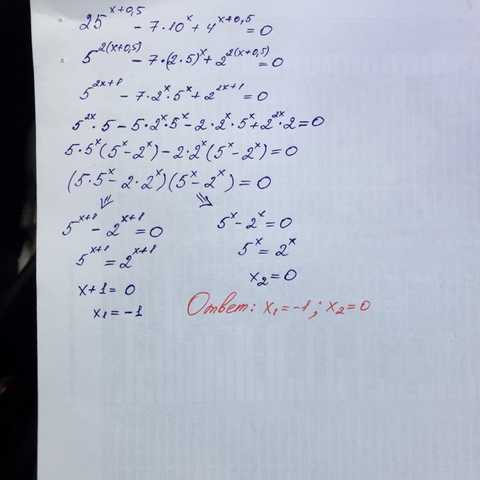 25^{x+0,5} - 7·10^x + 4^{x+0,5} = 0
5^{2(x+0,5)} - 7·(2·5)^x + 2^{2(x+0,5)} = 0
5^{2x+1} - 7·2^x·5^x + 2^{2x+1} = 0
5^{2x}·5 - 5·2^x·5^x - 2·2^x·5^x + 2^{2x}·2 = 0
5·5^x(5^x - 2^x) - 2·2^x(5^x - 2^x) = 0
(5·5^x - 2·2^x)(5^x - 2^x) = 0
⇙ ⇘
5^{x+1} - 2^{x+1} = 0
5^{x+1} = 2^{x+1}
x+1 = 0
x₁ = -1
5^x - 2^x = 0
5^x = 2^x
x₂ = 0
Ответ: x₁ = -1; x₂ = 0